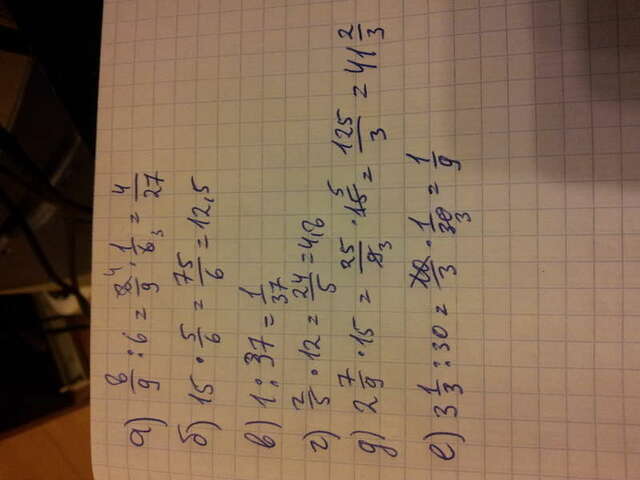 а) 8/9 : 6 = 8 4/9 · 1/6 3 = 4/27
б) 15 · 5/6 = 75/6 = 12,5
в) 1 : 37 = 1/37
г) 2/5 · 12 = 24/5 = 4,8
д) 2 7/9 · 15 = 25/9 3 · 15 5 = 125/3 = 41 2/3
е) 3 1/3 : 30 = 10/3 · 1/30 3 = 1/9